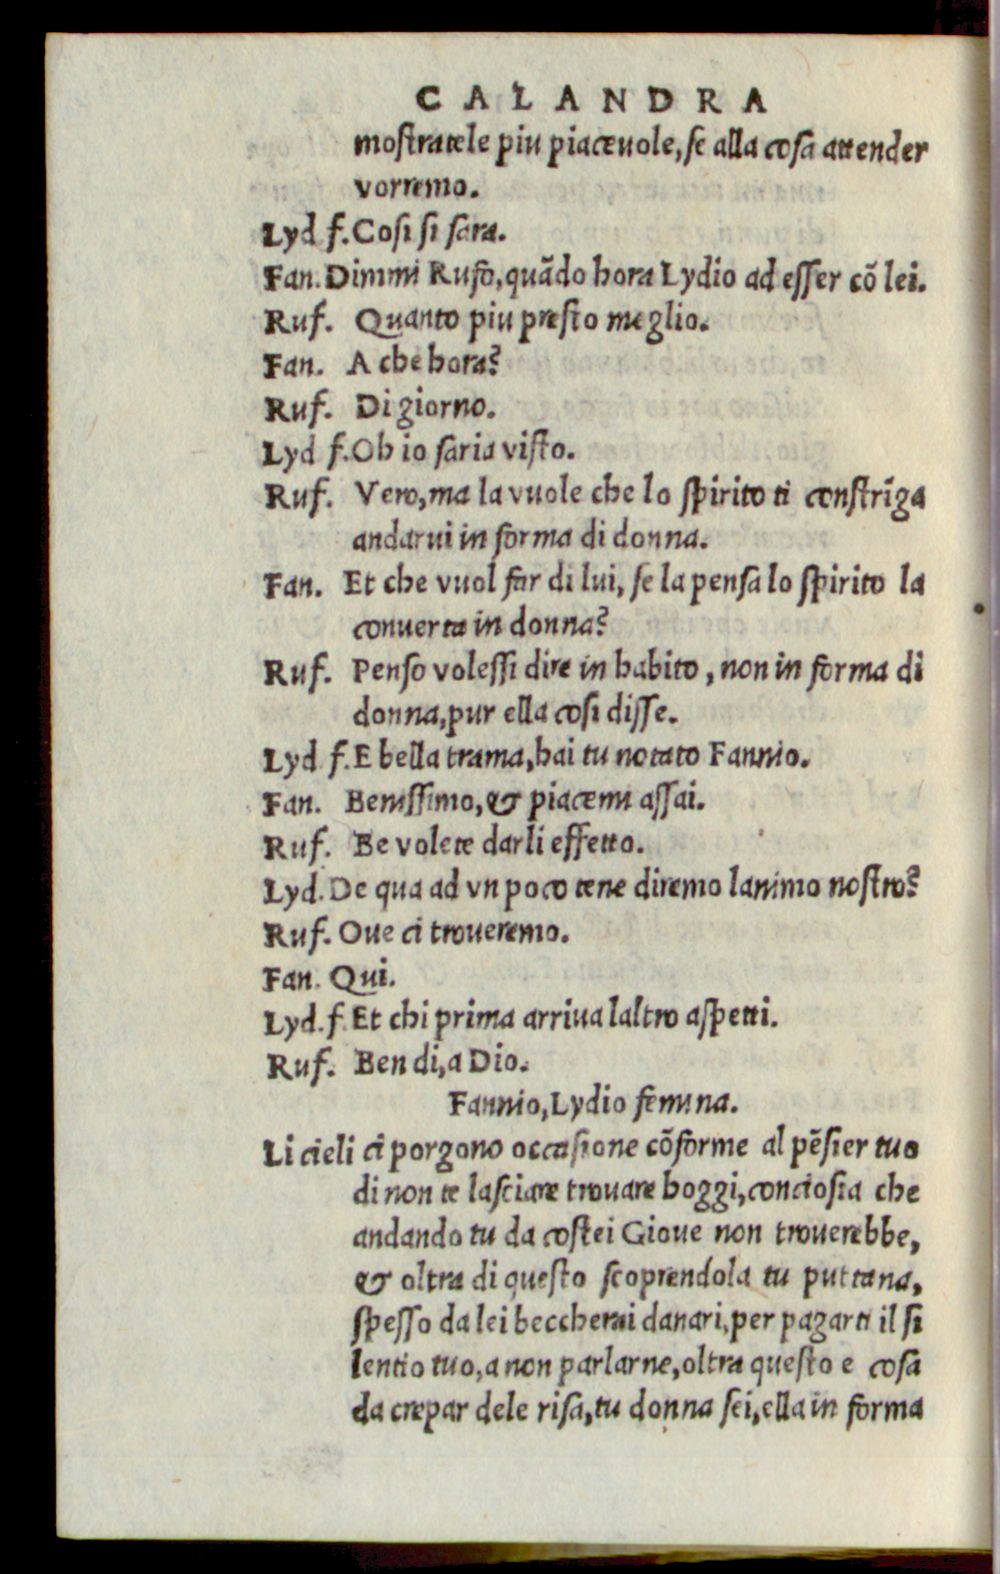 CALANDRA
mostratele piu piaceuole, se alla cosa attender
vorremo.
Lyd f. Cosi si sara.
Fan. Dimmi Rufo, quãdo hora Lydio ad esser cõ lei.
Ruf. Quanto piu presto meglio.
Fan. A che hora?
Ruf. Di giorno.
Lyd f. Oh io saria visto.
Ruf. Vero, ma la vuole che lo spirito ti constrĩga
andarui in forma di donna.
Fan. Et che vuol far di lui, se la pensa lo spirito la
conuerta in donna?
Ruf. Penso volessi dire in habito, non in forma di
donna, pur ella cosi disse.
Lyd f. E bella trama, hai tu notato Fannio.
Fan. Benissimo, & piacemi assai.
Ruf. Be volete darli effetto.
Lyd. De qua ad vn poco tene diremo lanimo nostro?
Ruf. Oue ci troueremo.
Fan. Qui.
Lyd. f. Et chi prima arriua laltro aspetti.
Ruf. Ben di, a Dio.
Fannio, Lydio femina.
Li cieli ci porgono occasione cõforme al pẽsier tuo
di non te lasciare trouare hoggi, conciosia che
andando tu da costei Gioue non trouerebbe,
& oltra di questo scoprendola tu puttana,
spesso da lei beccherai danari, per pagarti il si
lentio tuo, a non parlarne, oltra questo e cosa
da crepar dele risa, tu donna sei, ella in forma